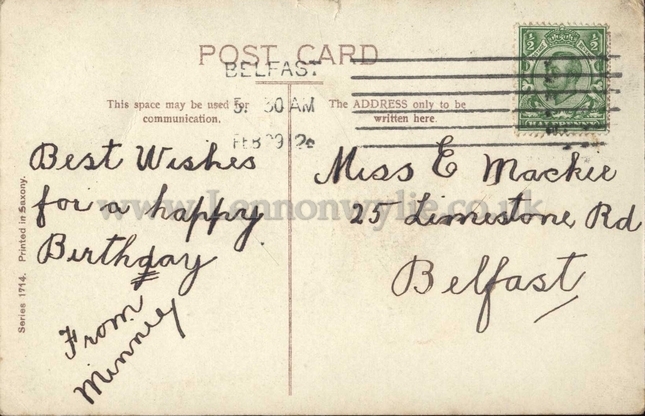 POST CARD
BELFAST
5. 30 AM
FEB 29 12
This space may be used for
communication.
The ADDRESS only to be
written here.
½ ½
Best Wishes
for a happy
Birthday
From
Minnie
Miss E Mackie
25 Limestone Rd
Belfast
Series 1714. Printed in Saxony.
www.Lennonwylie.co.uk